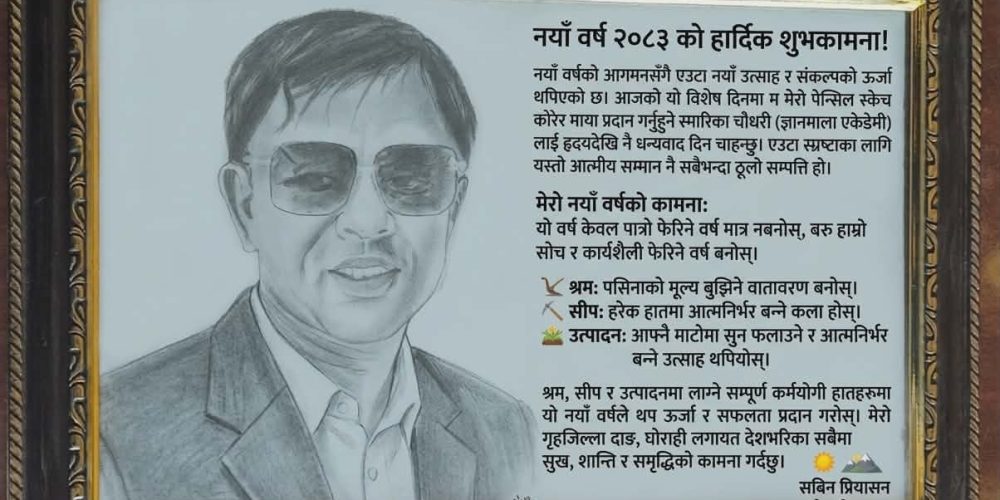 नयाँ वर्ष २०८३ को हार्दिक शुभकामना!
नयाँ वर्षको आगमनसँगै एउटा नयाँ उत्साह र संकल्पको ऊर्जा
थपिएको छ। आजको यो विशेष दिनमा म मेरो पेन्सिल स्केच
कोरेर माया प्रदान गर्नुहुने स्मारिका चौधरी (ज्ञानमाला एकेडेमी)
लाई हृदयदेखि नै धन्यवाद दिन चाहन्छु। एउटा स्रष्टाका लागि
यस्तो आत्मीय सम्मान नै सबैभन्दा ठूलो सम्पत्ति हो।
मेरो नयाँ वर्षको कामना:
यो वर्ष केवल पात्रो फेरिने वर्ष मात्र नबनोस्, बरु हाम्रो
सोच र कार्यशैली फेरिने वर्ष बनोस्।
श्रम: पसिनाको मूल्य बुझिने वातावरण बनोस्।
सीप: हरेक हातमा आत्मनिर्भर बन्ने कला होस्।
उत्पादन: आफ्नै माटोमा सुन फलाउने र आत्मनिर्भर
बन्ने उत्साह थपियोस्।
श्रम, सीप र उत्पादनमा लाग्ने सम्पूर्ण कर्मयोगी हातहरुमा
यो नयाँ वर्षले थप ऊर्जा र सफलता प्रदान गरोस्। मेरो
गृहजिल्ला दाङ, घोराही लगायत देशभरिका सबैमा
सुख, शान्ति र समृद्धिको कामना गर्दछु।
सबिन प्रियासन